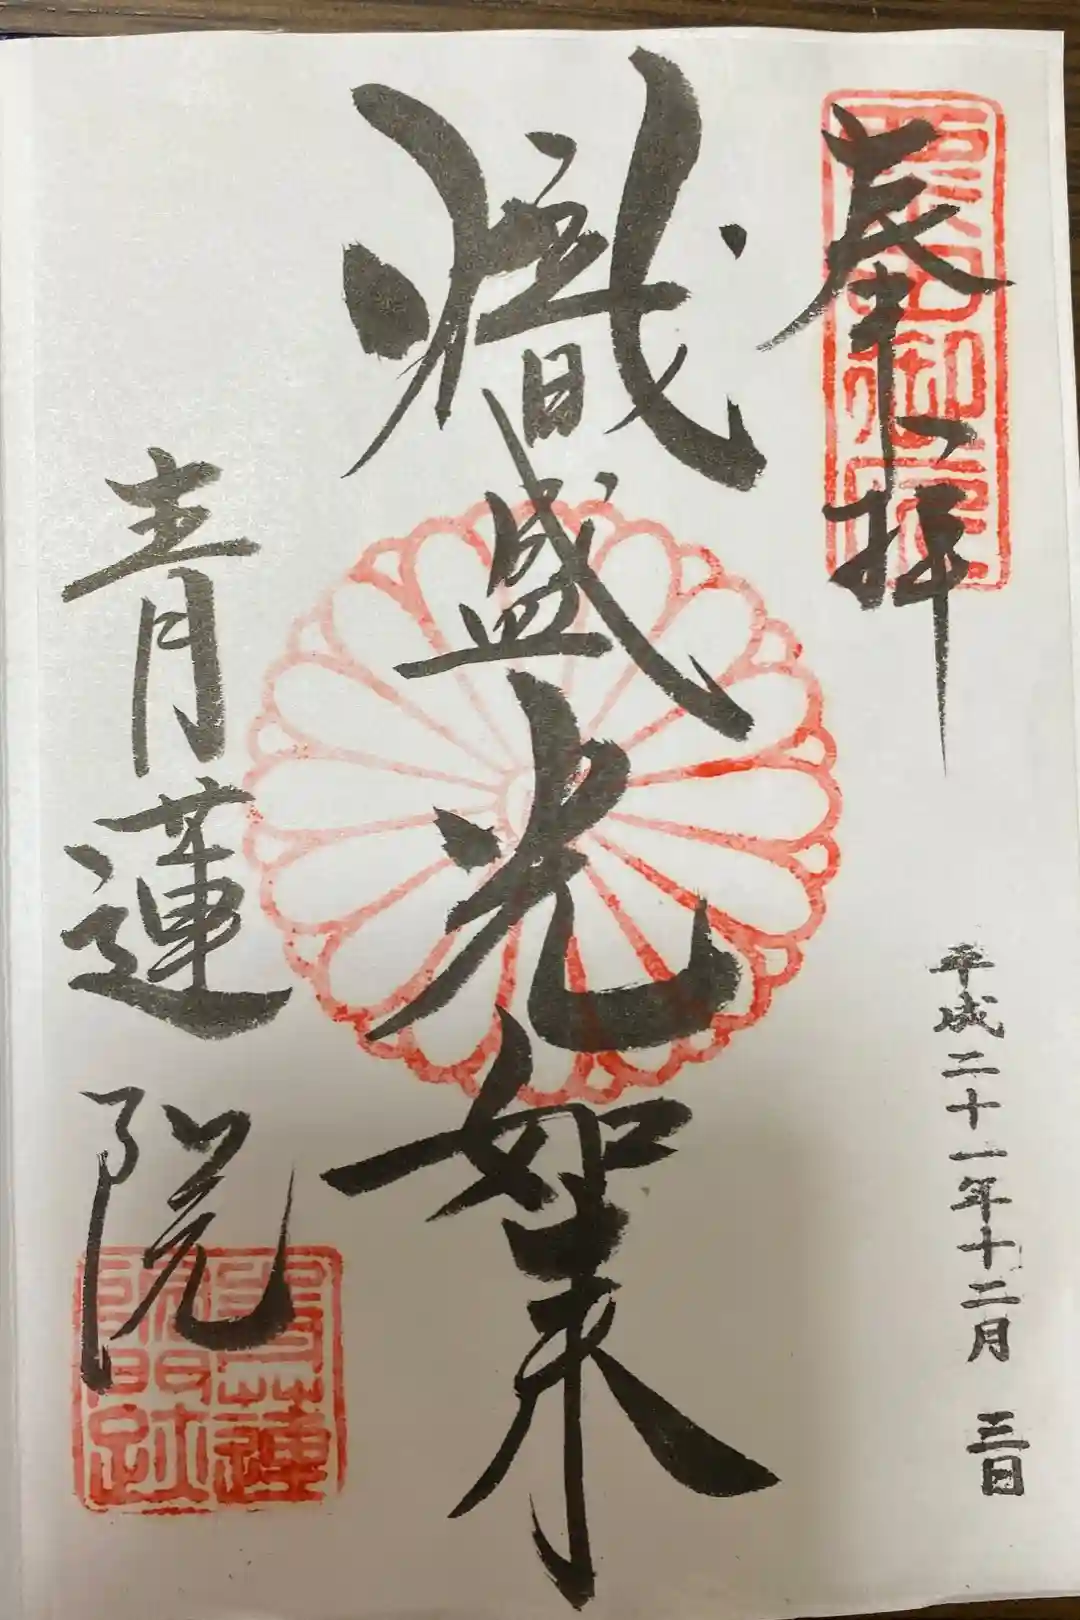 奉拝
平成二十一年十二月 三日
熾盛光如来
青蓮院
青蓮院門跡